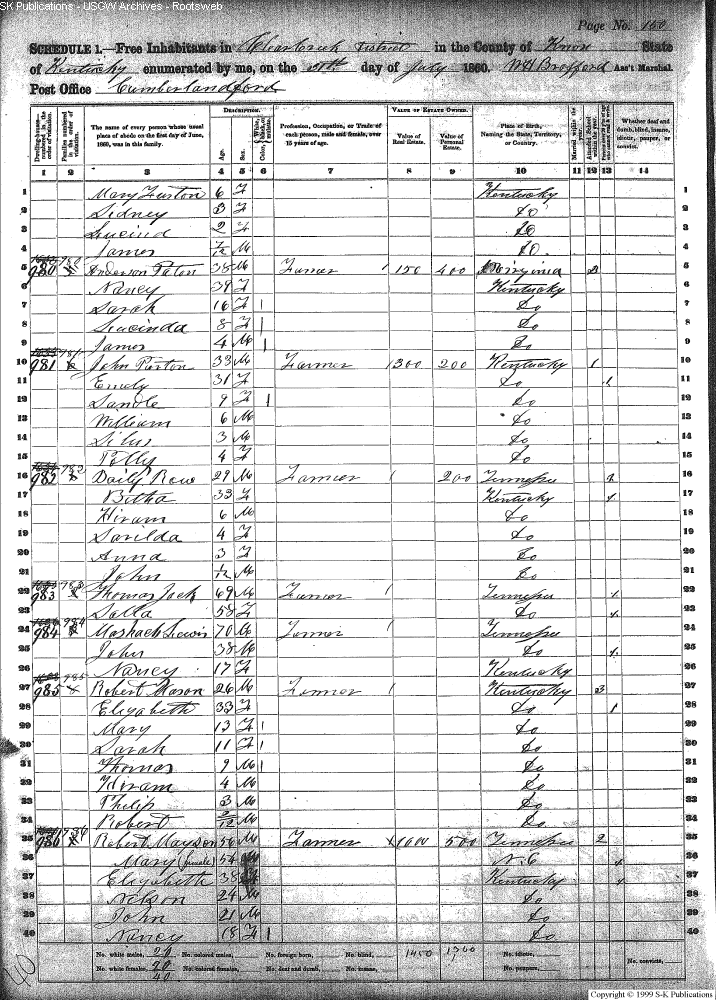 SK Publications - USGW Archives - Rootsweb
Page No. 150
SCHEDULE 1.—Free Inhabitants in Clear Creek District in the County of Knox State
of Kentucky enumerated by me, on the day of July 1860. Ass't Marshal.
Post Office Cumberlandford
DESCRIPTION. VALUE OF ESTATE OWNED.
Dwelling-houses—numbered in the order of visitation. Families numbered in the order of visitation. The name of every person whose usual place of abode on the first day of June, 1860, was in this family. Age. Sex. Color, White, black, or mulatto. Profession, Occupation, or Trade of each person, male and female, over 15 years of age. Value of Real Estate. Value of Personal Estate. Place of Birth, Naming the State, Territory, or Country. Married within the year. Attended School within the year. Whether deaf and dumb, blind, insane, idiotic, pauper, or convict.
1 2 3 4 5 6 7 8 9 10 11 12 13 14
1 Mary 6 F Kentucky 1
2 Sidney 3 F do 2
3 Lucind 2 F do 3
4 James 7/12 M do 4
5 980 780 Anderson 38 M Farmer 150 400 Virginia 5
6 Nancy 39 F Kentucky 6
7 Sarah 16 F 1 do 7
8 Lucinda 8 F 1 do 8
9 James 4 M 1 do 9
10 981 781 John 33 M Farmer 1300 200 Kentucky 1 10
11 Emely 31 F do 1 11
12 9 F 1 do 12
13 William 6 M do 13
14 Silus 3 M do 14
15 Polly 4 F do 15
16 982 782 29 M Farmer 200 Tennessee 16
17 Bitha 33 F Kentucky 17
18 Hiram 6 M do 18
19 Sarilda 4 F do 19
20 Anna 3 F do 20
21 John 1/12 M do 21
22 983 783 Thomas Jack 69 M Farmer Tennessee 22
23 58 F do 23
24 984 784 Mashack Lewis 70 M Farmer Tennessee 24
25 John 38 M do 25
26 Nancy 17 F Kentucky 26
27 985 785 Robert Mason 26 M Farmer Kentucky 27
28 Elizabeth 33 F do 1 28
29 Mary 13 F 1 do 29
30 Sarah 11 F 1 do 30
31 Thomas 9 M 1 do 31
32 Hiram 4 M do 32
33 Philip 3 M do 33
34 Robert M do 34
35 986 Robert Mayson 56 M Farmer 1000 500 Tennessee 2 35
36 Mary (female) 54 N.C 36
37 Elizabeth 38 Kentucky 37
38 Nelson 24 M do 38
39 John 21 M do 39
40 Nancy 18 F 1 do 40
No. white males, 20 No. colored males, No. foreign born, No. blind, 1450 1300 No. idiotic, No. convicts,
No. white females, 20 No. colored females, No. deaf and dumb, No. insane, No. paupers,
40
40
Copyright © 1999 S-K Publications